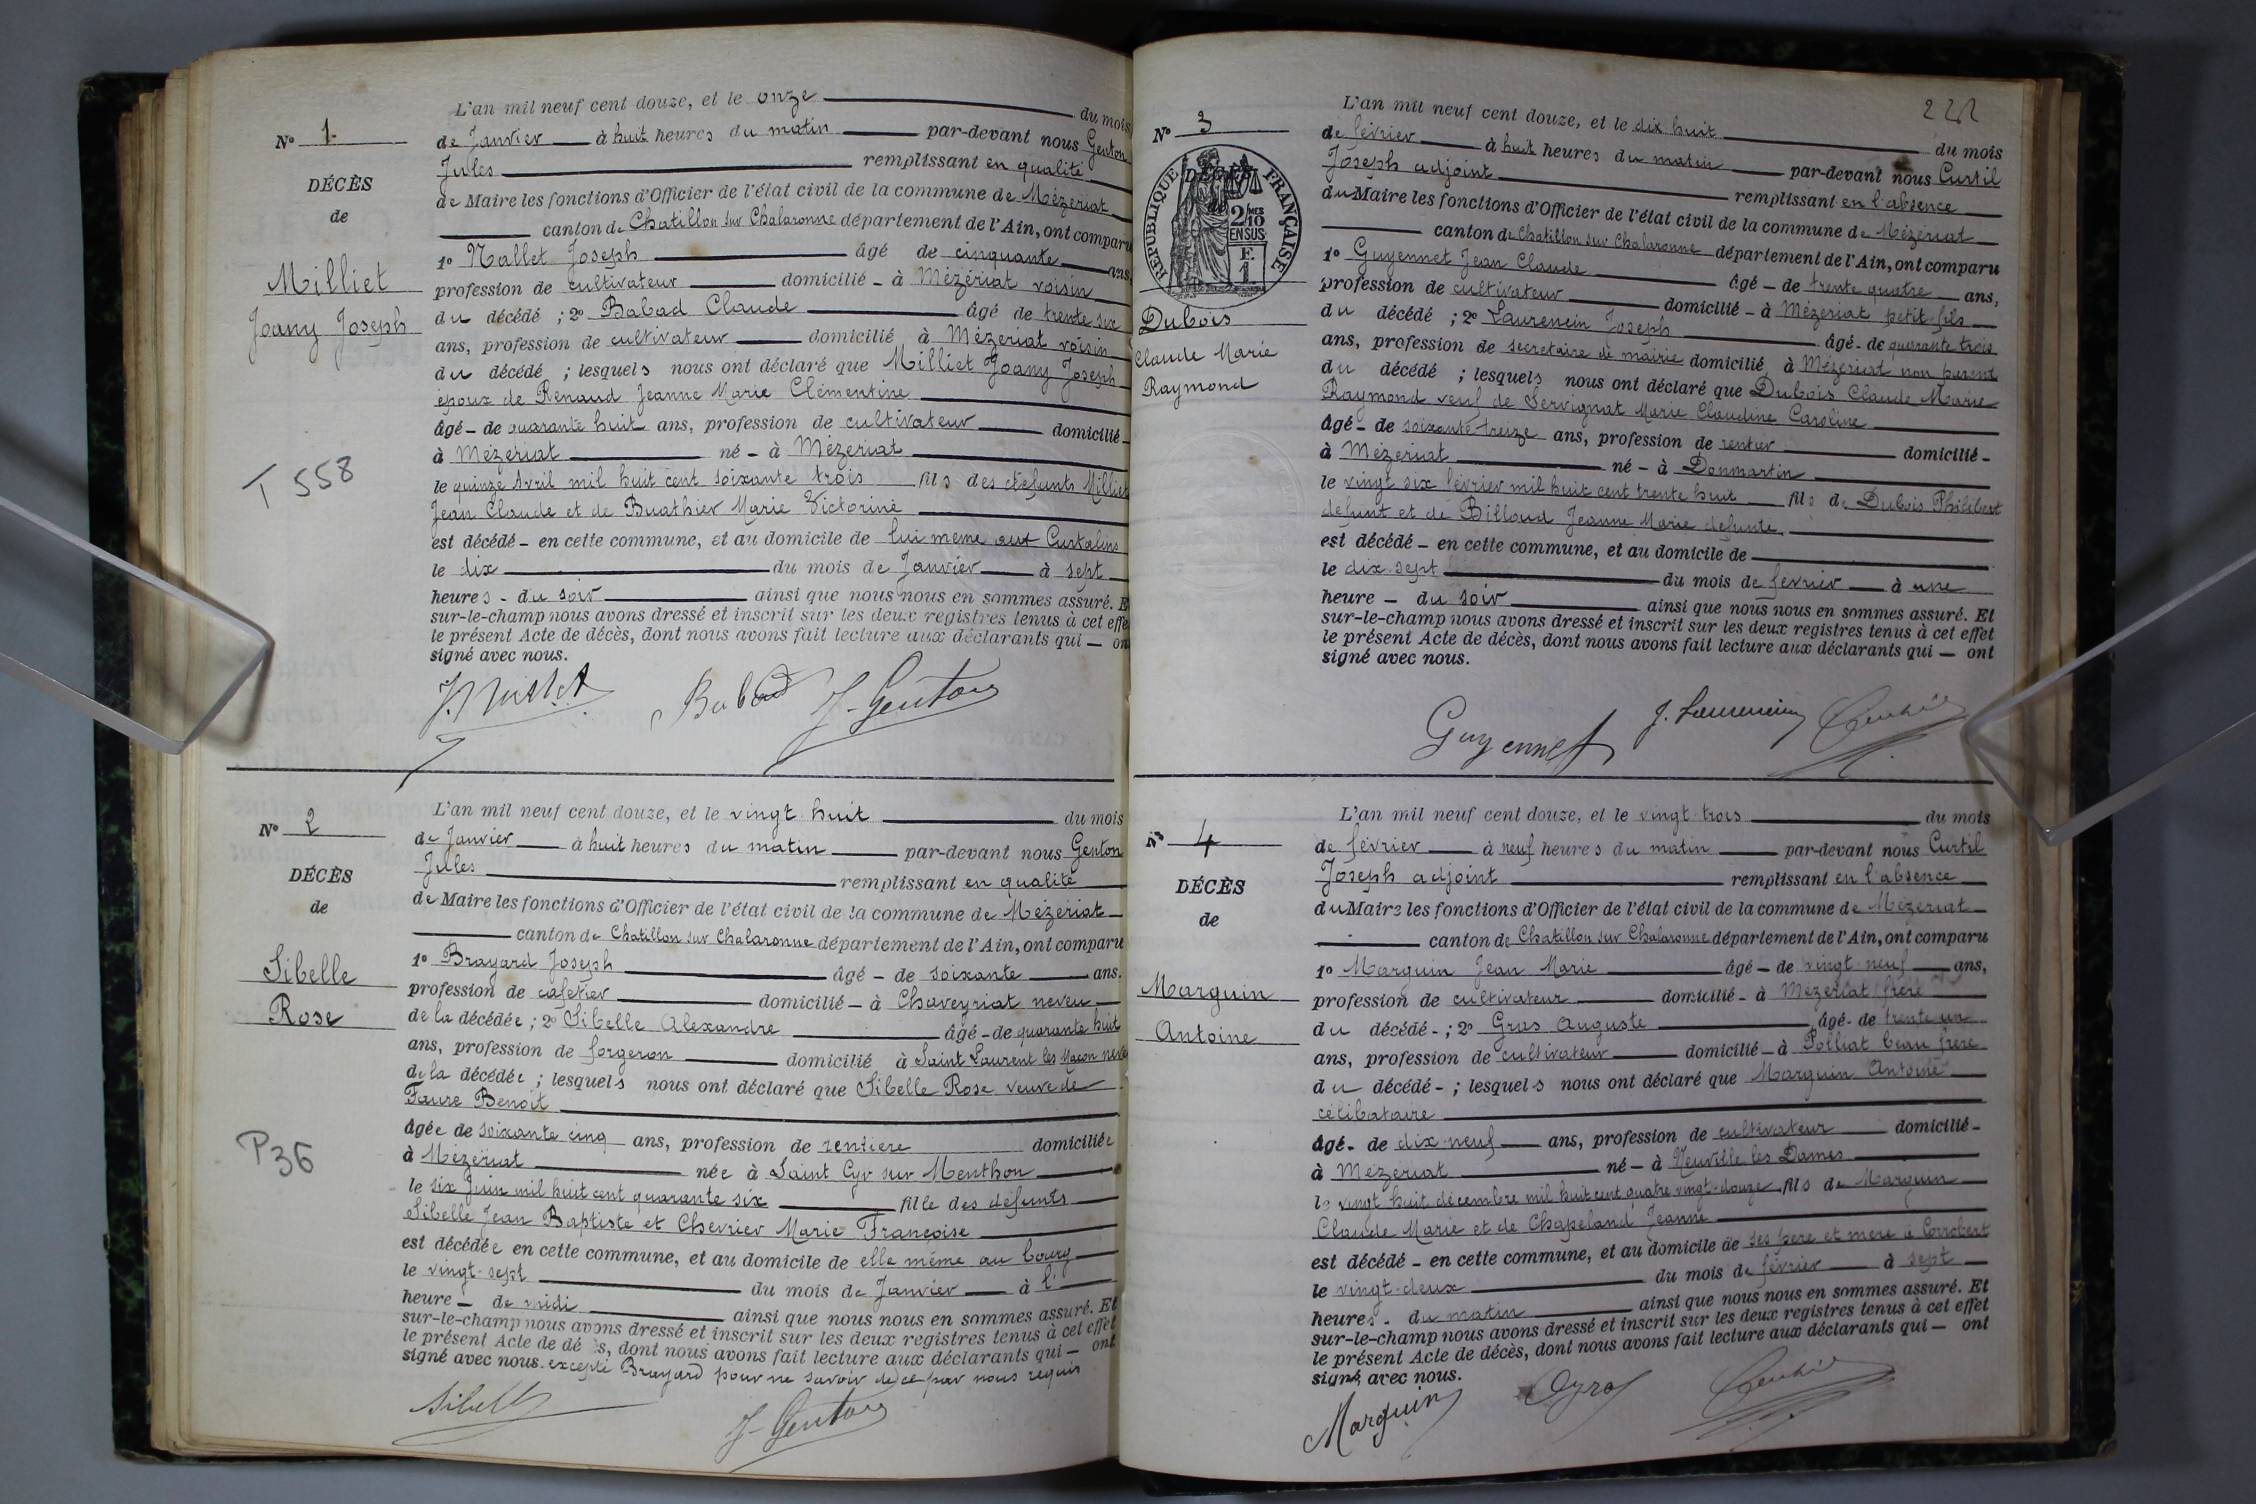 L'an mil neuf cent douze, et le onze du mois
N° 1
de Janvier à huit heures du matin par-devant nous Genton
Jules remplissant en qualité
DÉCÈS
de Maire les fonctions d'Officier de l'état civil de la commune de Mézériat
de
canton de Chatillon sur Chalaronne département de l'Ain, ont comparu
1° Nallet Joseph âgé de cinquante ans,
Milliet
profession de cultivateur domicilié - à Mézériat voisin
Joany Joseph
du décédé ; 2° Babad Claude âgé de trente six
ans, profession de cultivateur domicilié à Mézériat voisin
du décédé ; lesquels nous ont déclaré que Milliet Joany Joseph
époux de Renaud Jeanne Marie Clémentine
âgé - de quarante huit ans, profession de cultivateur domicilié -
à Mézériat né - à Mézeriat
T 558
le quinze Avril mil huit cent soixante trois fils des défunts Milliet
Jean Claude et de Buathier Marie Victorine
est décédé - en cette commune, et au domicile de lui même aux Curtalins
le dix du mois de Janvier à sept
heures - du soir ainsi que nous nous en sommes assuré. E
sur-le-champ nous avons dressé et inscrit sur les deux registres tenus à cet effe
le présent Acte de décès, dont nous avons fait lecture aux déclarants qui — on
signé avec nous.
Babad J. Genton
L'an mil neuf cent douze, et le vingt huit du mois
N° 2
de Janvier à huit heures du matin par-devant nous Genton
Jules remplissant en qualité
DÉCÈS
de Maire les fonctions d'Officier de l'état civil de la commune de Mézériat
de
canton de Chatillon sur Chalaronne département de l'Ain, ont comparu
Sibelle
1° Brayard Joseph âgé - de soixante ans.
profession de cafetier domicilié - à Chaveyriat neveu
Rose
de la décédée ; 2° Sibelle Alexandre âgé - de quarante huit
ans, profession de forgeron domicilié à Saint Laurent les Macon neveu
de la décédée ; lesquels nous ont déclaré que Sibelle Rose veuve de
Faure Benoit
âgée de soixante cinq ans, profession de rentiere domiciliée
P36
à Mézériat née à Saint Cyr sur Menthon
le six Juin mil huit cent quarante six fille des défunts
Sibelle Jean Baptiste et Chevrier Marie Françoise
est décédée en cette commune, et au domicile de elle même au bourg
le vingt-sept du mois de Janvier à l'
heure - de midi ainsi que nous nous en sommes assuré. Et
sur-le-champ nous avons dressé et inscrit sur les deux registres tenus à cet effet
le présent Acte de dé s, dont nous avons fait lecture aux déclarants qui — ont
signé avec nous. excepté Brayard pour ne savoir de ce par nous requis
Sibelle J. Genton
222
L'an mil neuf cent douze, et le dix huit du mois
N° 3
de février à huit heures du matin par-devant nous Curtil
Joseph adjoint remplissant en l'absence
RÉPUBLIQUE FRANÇAISE
DÉCÈS
2/10 MES
EN SUS
F.
1
du Maire les fonctions d'Officier de l'état civil de la commune de Mézériat
canton de Chatillon sur Chalaronne département de l'Ain, ont comparu
1° Guyennet Jean Claude âgé - de trente quatre ans,
profession de cultivateur domicilié - à Mézériat petit-fils
Dubois
du décédé ; 2° Laurencin Joseph âgé - de quarante trois
Claude Marie
ans, profession de secretaire de mairie domicilié à Mézériat non parent
Raymond
du décédé ; lesquels nous ont déclaré que Dubois Claude Marie
Raymond veuf de Servignat Marie Claudine Caroline
âgé - de soixante-treize ans, profession de rentier domicilié -
à Mézériat né - à Donmartin
le vingt six février mil huit cent trente huit fils de Dubois Philibert
défunt et de Billoud Jeanne Marie défunte
est décédé - en cette commune, et au domicile de
le dix-sept du mois de février à une
heure — du soir ainsi que nous nous en sommes assuré. Et
sur-le-champ nous avons dressé et inscrit sur les deux registres tenus à cet effet
le présent Acte de décès, dont nous avons fait lecture aux déclarants qui — ont
signé avec nous.
Guyennet J. Laurencin
L'an mil neuf cent douze, et le vingt-trois du mois
N° 4
de février à neuf heures du matin par-devant nous Curtil
Joseph adjoint remplissant en l'absence
DÉCÈS
du Maire les fonctions d'Officier de l'état civil de la commune de Mézériat
de
canton de Chatillon sur Chalaronne département de l'Ain, ont comparu
1° Marguin Jean Marie âgé - de vingt-neuf ans,
Marguin
profession de cultivateur domicilié - à Mézériat frère
Antoine
du décédé - ; 2° Gras Auguste âgé - de trente un
ans, profession de cultivateur domicilié - à Polliat beau frère
du décédé - ; lesquels nous ont déclaré que Marguin Antoine
célibataire
âgé - de dix-neuf ans, profession de cultivateur domicilié -
à Mézériat né - à Neuville les Dames
le vingt huit décembre mil huit cent quatre vingt-douze fils de Marguin
Claude Marie et de Chapeland Jeanne
est décédé - en cette commune, et au domicile de ses père et mère à Corrobert
le vingt-deux du mois de février à sept
heures - du matin ainsi que nous nous en sommes assuré. Et
sur-le-champ nous avons dressé et inscrit sur les deux registres tenus à cet effet
le présent Acte de décès, dont nous avons fait lecture aux déclarants qui — ont
signé avec nous.
Marguin